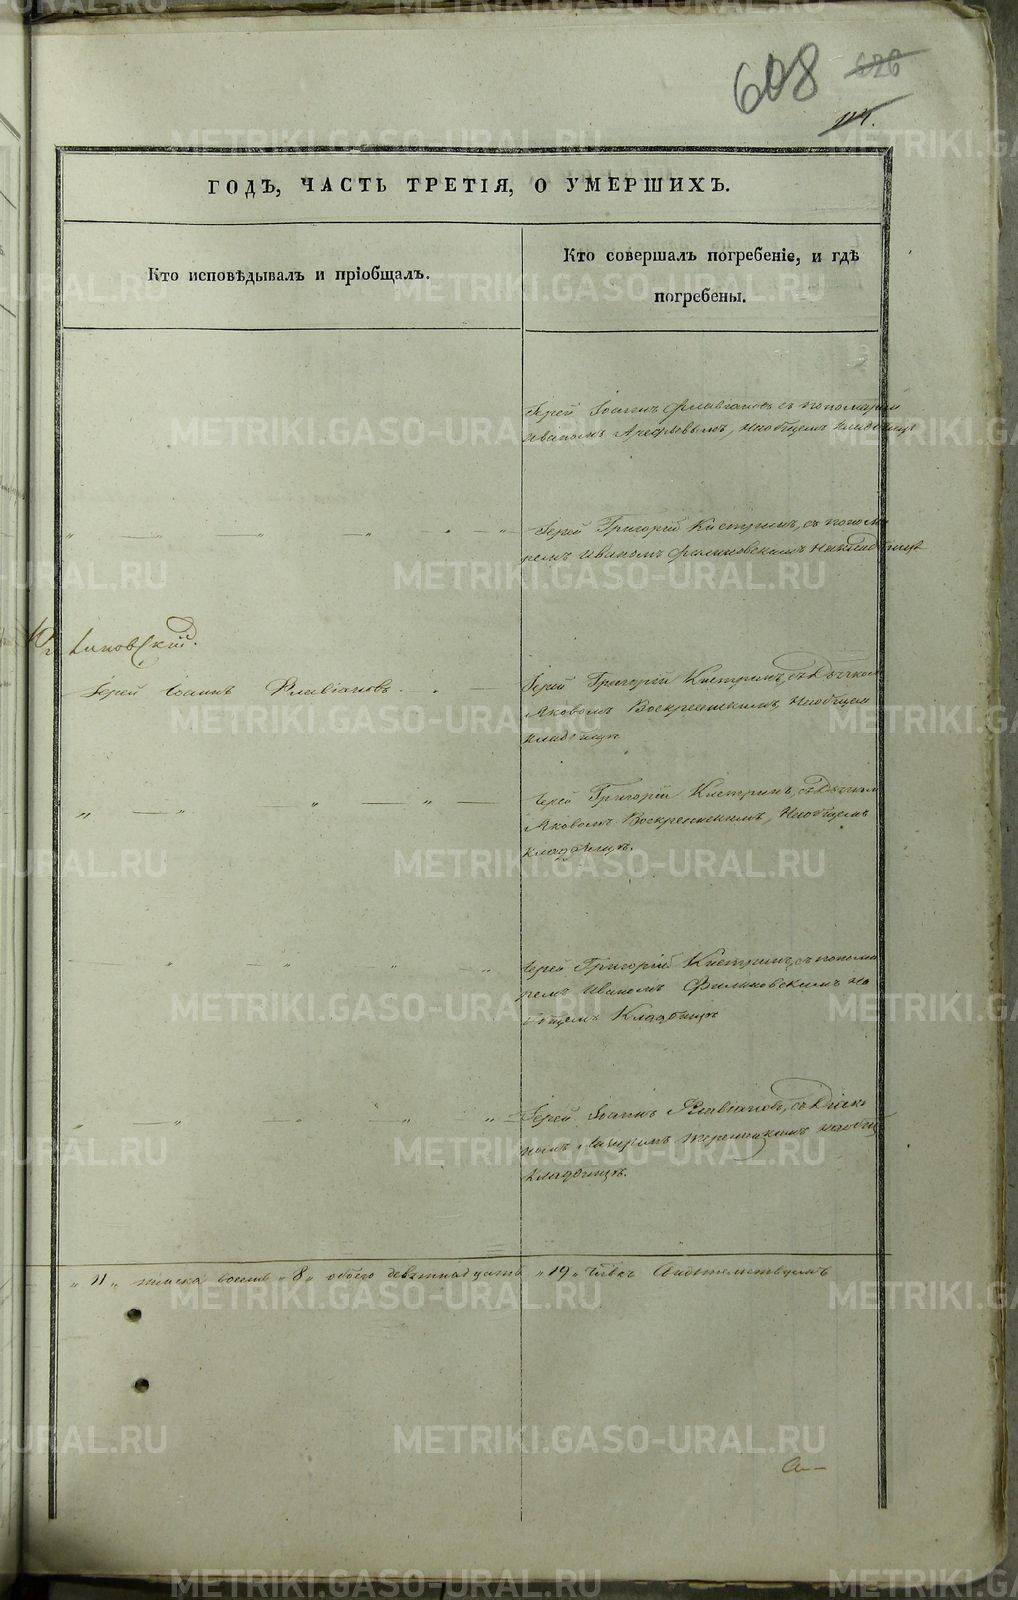 608 626
ГОДЪ, ЧАСТЬ ТРЕТІЯ, О УМЕРШИХЪ.
Кто исповѣдывалъ и пріобщалъ.
Кто совершалъ погребеніе, и гдѣ
погребены.
Іерей Іоаннъ Флавіановъ съ пономаремъ
Иваномъ Арефьевымъ, на общемъ кладбищѣ
Іерей Григорій Кистринъ, съ понома
ремъ Иваномъ Филиковскимъ на кладбищѣ
Іерей Іоаннъ Флавіановъ.
Іерей Григорій Кистринъ, съ Дьячком
Яковомъ Воскресенскимъ, на общем
кладбищѣ
Іерей Григорій Кистринъ, съ Дьячком
Яковомъ Воскресенскимъ, на общемъ
кладбищѣ.
Іерей Григорій Кистринъ, съ понома
ремъ Иваномъ Филиковскимъ на
общемъ Кладбищѣ
Іерей Іоаннъ Флавіановъ, съ Діако
номъ на общ
кладбищѣ.
„ 11 „ женска восемь „ 8 „ обоего девятнадцать „ 19 „ человѣкъ Свидѣтельствуемъ
METRIKI.GASO-URAL.RU